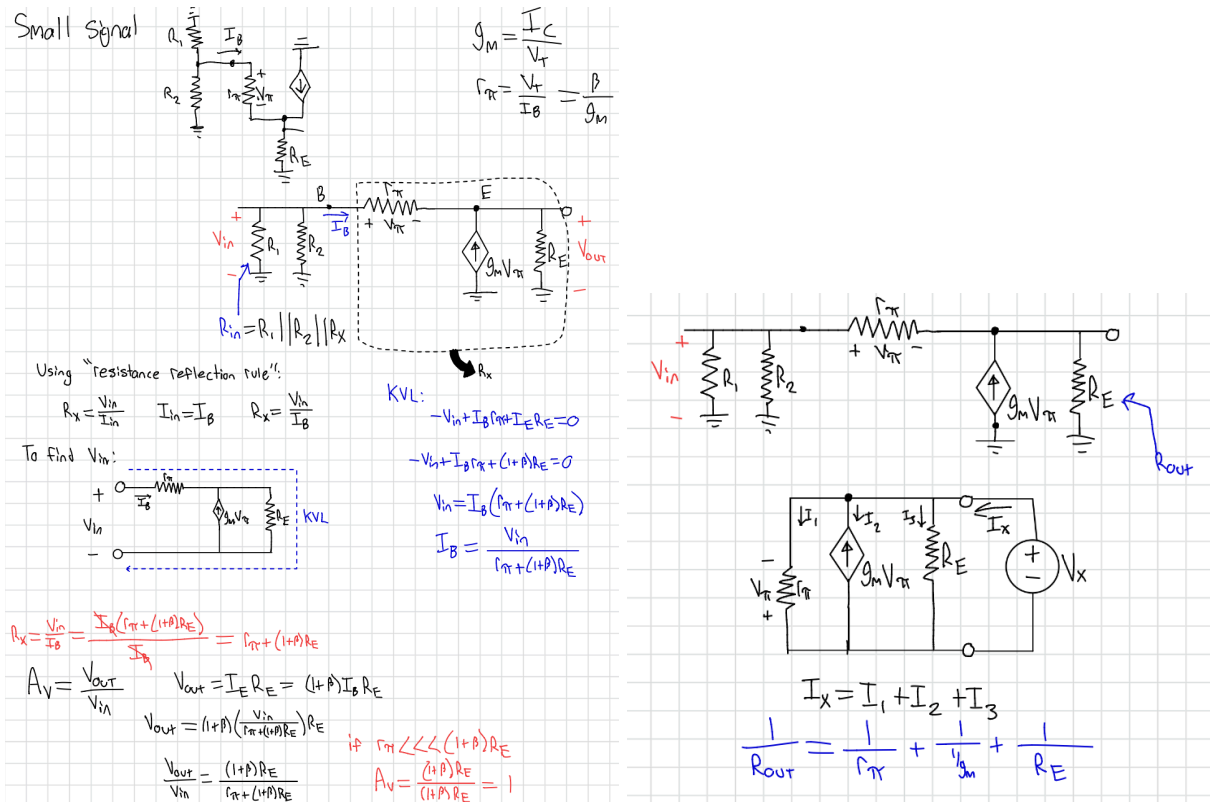 Small Signal
R₁
I_B
R₂
r_π
+
V_π
-
R_E
g_M = I_C / V_T
r_π = V_T / I_B = β / g_M
B
r_π
E
+ V_π -
I_B
+
V_in
-
R₁
R₂
g_M V_π
R_E
+
V_OUT
-
R_in = R₁ || R₂ || R_X
R_X
Using "resistance reflection rule":
R_X = V_in / I_in
I_in = I_B
R_X = V_in / I_B
KVL:
-V_in + I_B r_π + I_E R_E = 0
-V_in + I_B r_π + (1+β)R_E = 0
V_in = I_B (r_π + (1+β)R_E)
I_B = V_in / (r_π + (1+β)R_E)
To find V_in:
+
V_in
-
I_B
r_π
g_M V_π
R_E
KVL
R_X = V_in / I_B = I_B (r_π + (1+β)R_E) / I_B = r_π + (1+β)R_E
A_V = V_OUT / V_in
V_out = I_E R_E = (1+β) I_B R_E
V_out = (1+β) (V_in / (r_π + (1+β)R_E)) R_E
V_out / V_in = (1+β)R_E / (r_π + (1+β)R_E)
if r_π <<< (1+β)R_E
A_V = (1+β)R_E / (1+β)R_E = 1
r_π
+ V_π -
+
V_in
-
R₁
R₂
g_M V_π
R_E
R_OUT
I₁
I₂
I₃
I_X
-
V_π
+
r_π
g_M V_π
R_E
+
-
V_X
I_X = I₁ + I₂ + I₃
1 / R_OUT = 1 / r_π + 1 / (1/g_M) + 1 / R_E